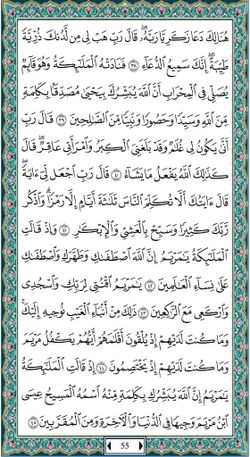 هُنَالِكَ دَعَا زَكَرِيَّا رَبَّهُۥ ۖ قَالَ رَبِّ هَبْ لِى مِن لَّدُنكَ ذُرِّيَّةً
طَيِّبَةً ۖ إِنَّكَ سَمِيعُ ٱلدُّعَآءِ ٣٨ فَنَادَتْهُ ٱلْمَلَٰٓئِكَةُ وَهُوَ قَآئِمٌ
يُصَلِّى فِى ٱلْمِحْرَابِ أَنَّ ٱللَّهَ يُبَشِّرُكَ بِيَحْيَىٰ مُصَدِّقًۢا بِكَلِمَةٍ
مِّنَ ٱللَّهِ وَسَيِّدًا وَحَصُورًا وَنَبِيًّا مِّنَ ٱلصَّٰلِحِينَ ٣٩ قَالَ رَبِّ
أَنَّىٰ يَكُونُ لِى غُلَٰمٌ وَقَدْ بَلَغَنِىَ ٱلْكِبَرُ وَٱمْرَأَتِى عَاقِرٌ ۖ قَالَ
كَذَٰلِكَ ٱللَّهُ يَفْعَلُ مَا يَشَآءُ ٤٠ قَالَ رَبِّ ٱجْعَل لِّىٓ ءَايَةً ۖ
قَالَ ءَايَتُكَ أَلَّا تُكَلِّمَ ٱلنَّاسَ ثَلَٰثَةَ أَيَّامٍ إِلَّا رَمْزًا ۗ وَٱذْكُر
رَّبَّكَ كَثِيرًا وَسَبِّحْ بِٱلْعَشِىِّ وَٱلْإِبْكَٰرِ ٤١ وَإِذْ قَالَتِ
ٱلْمَلَٰٓئِكَةُ يَٰمَرْيَمُ إِنَّ ٱللَّهَ ٱصْطَفَىٰكِ وَطَهَّرَكِ وَٱصْطَفَىٰكِ
عَلَىٰ نِسَآءِ ٱلْعَٰلَمِينَ ٤٢ يَٰمَرْيَمُ ٱقْنُتِى لِرَبِّكِ وَٱسْجُدِى
وَٱرْكَعِى مَعَ ٱلرَّٰكِعِينَ ٤٣ ذَٰلِكَ مِنْ أَنۢبَآءِ ٱلْغَيْبِ نُوحِيهِ إِلَيْكَ ۚ
وَمَا كُنتَ لَدَيْهِمْ إِذْ يُلْقُونَ أَقْلَٰمَهُمْ أَيُّهُمْ يَكْفُلُ مَرْيَمَ
وَمَا كُنتَ لَدَيْهِمْ إِذْ يَخْتَصِمُونَ ٤٤ إِذْ قَالَتِ ٱلْمَلَٰٓئِكَةُ
يَٰمَرْيَمُ إِنَّ ٱللَّهَ يُبَشِّرُكِ بِكَلِمَةٍ مِّنْهُ ٱسْمُهُ ٱلْمَسِيحُ عِيسَى
ٱبْنُ مَرْيَمَ وَجِيهًا فِى ٱلدُّنْيَا وَٱلْءَاخِرَةِ وَمِنَ ٱلْمُقَرَّبِينَ ٤٥
55